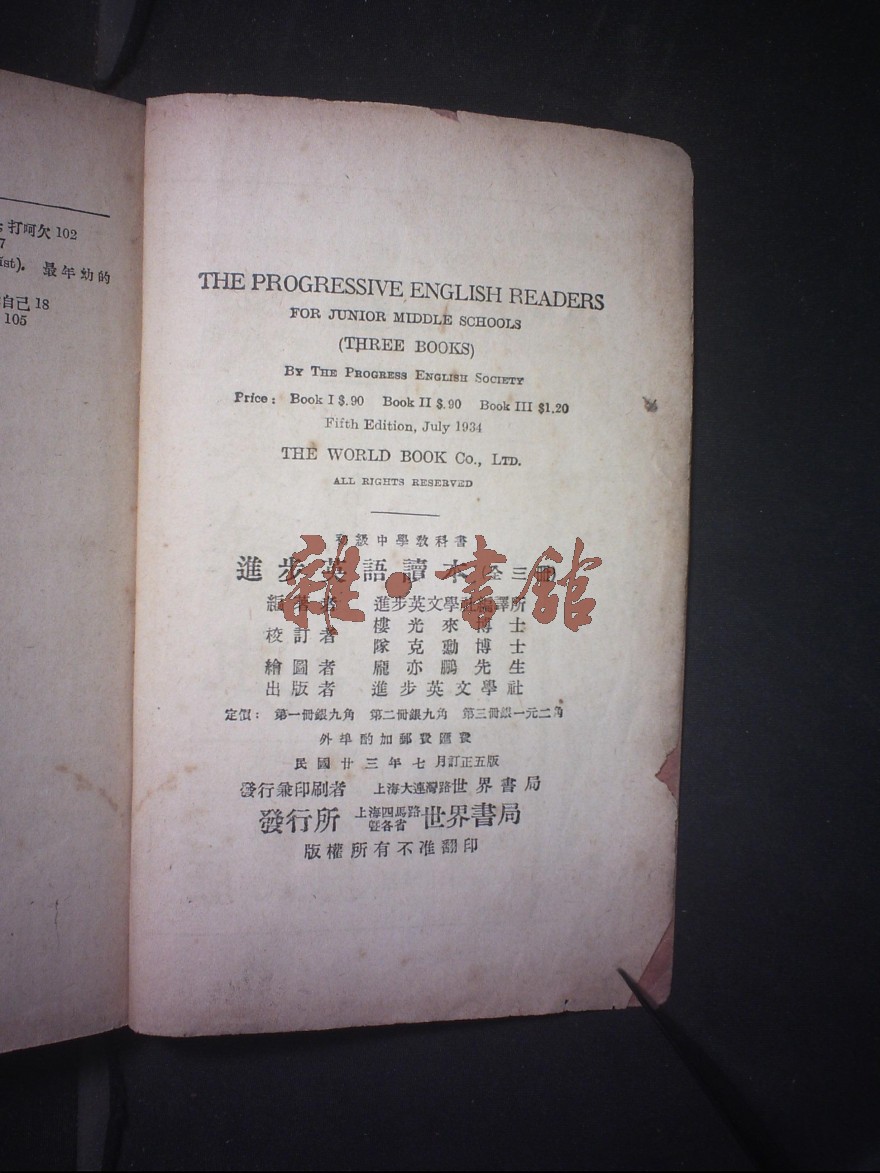 ; 打呵欠 102
7
ist). 最年幼的
自己 18
105
THE PROGRESSIVE ENGLISH READERS
FOR JUNIOR MIDDLE SCHOOLS
(THREE BOOKS)
BY THE PROGRESS ENGLISH SOCIETY
Price: Book I $.90 Book II $.90 Book III $1.20
Fifth Edition, July 1934
THE WORLD BOOK Co., LTD.
ALL RIGHTS RESERVED
初級中學教科書
進步英語讀本(全三冊)
編著者 進步英文學社編譯所
校訂者 樓光來博士
隊克勳博士
繪圖者 龐亦鵬先生
出版者 進步英文學社
定價: 第一冊銀九角 第二冊銀九角 第三冊銀一元二角
外埠酌加郵費匯費
民國廿三年七月訂正五版
發行兼印刷者 上海大連灣路世界書局
發行所 上海四馬路暨各省世界書局
版權所有不准翻印
雜·書館